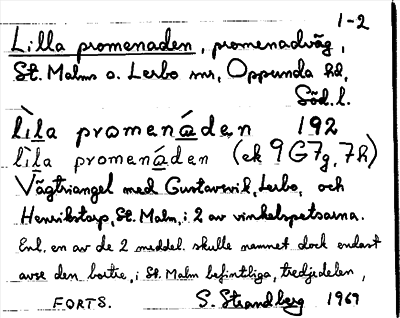 1-2
Lilla promenaden, promenadväg,
St. Malms o. Lerbo snr, Oppunda hd,
Söd. l.
lìla promenáden 192
lìla promenaden (ek 9G7g, 7h)
Vägtriangel med Gustavsvik, Lerbo, och
Henrikstorp, St. Malm, i 2 av vinkelspetsarna.
Enl. en av de 2 meddel. skulle namnet dock endast
avse den bortre, i St. Malm befintliga, tredjedelen,
FORTS. S. Strandberg 1969